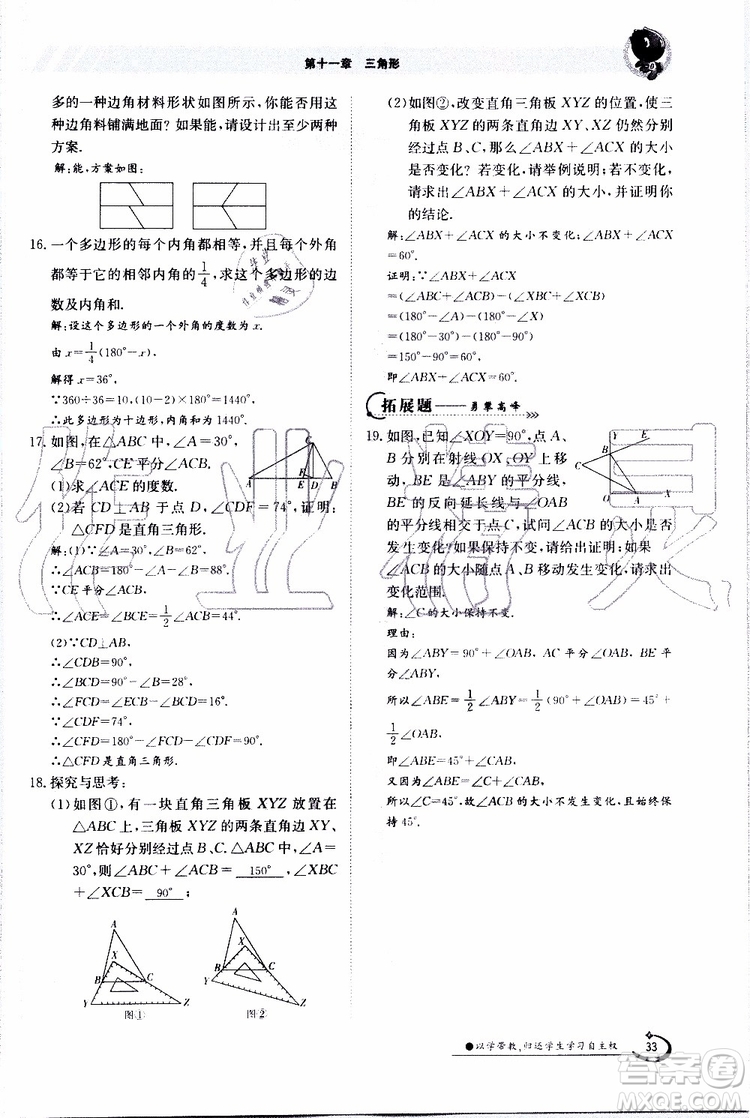 第十一章 三角形
多的一种边角材料形状如图所示,你能否用这
种边角料铺满地面?如果能,请设计出至少两种
方案.
解:能,方案如图:
16. 一个多边形的每个内角都相等,并且每个外角
都等于它的相邻内角的1/4,求这个多边形的边
数及内角和.
解:设这个多边形的一个外角的度数为x.
由x=1/4(180°-x),
解得x=36°,
∵360÷36=10,(10-2)×180°=1440°,
∴此多边形为十边形,内角和为1440°.
17. 如图,在△ABC中,∠A=30°,
∠B=62°,CE平分∠ACB.
(1)求∠ACE的度数.
(2)若CD⊥AB于点D,∠CDF=74°,证明:
△CFD是直角三角形.
解:(1)∵∠A=30°,∠B=62°,
∴∠ACB=180°-∠A-∠B=88°,
∵CE平分∠ACB,
∴∠ACE=∠BCE=1/2∠ACB=44°.
(2)∵CD⊥AB,
∴∠CDB=90°,
∴∠BCD=90°-∠B=28°,
∴∠FCD=∠ECB-∠BCD=16°,
∵∠CDF=74°,
∴∠CFD=180°-∠FCD-∠CDF=90°,
∴△CFD是直角三角形.
18. 探究与思考:
(1)如图①,有一块直角三角板XYZ放置在
△ABC上,三角板XYZ的两条直角边XY、
XZ恰好分别经过点B、C.△ABC中,∠A=
30°,则∠ABC+∠ACB= 150° ,
∠XBC+∠XCB= 90° ;
图① 图②
(2)如图②,改变直角三角板XYZ的位置,使三
角板XYZ的两条直角边XY、XZ仍然分别
经过点B、C,那么∠ABX+∠ACX的大小
是否变化?若变化,请举例说明;若不变化,
请求出∠ABX+∠ACX的大小,并证明你
的结论.
解:∠ABX+∠ACX的大小不变化;∠ABX+∠ACX
=60°.
证明:∵∠ABX+∠ACX
=(∠ABC+∠ACB)-(∠XBC+∠XCB)
=(180°-∠A)-(180°-∠X)
=(180°-30°)-(180°-90°)
=150°-90°=60°,
即∠ABX+∠ACX=60°.
拓展题——勇攀高峰
19. 如图,已知∠XOY=90°,点A、
B分别在射线OX、OY上移
动,BE是∠ABY的平分线,
BE的反向延长线与∠OAB
的平分线相交于点C,试问∠ACB的大小是否
发生变化?如果保持不变,请给出证明;如果
∠ACB的大小随点A、B移动发生变化,请求出
变化范围.
解:∠C的大小保持不变.
理由:
因为∠ABY=90°+∠OAB,AC平分∠OAB,BE平分
∠ABY,
所以∠ABE=1/2∠ABY=1/2(90°+∠OAB)=45°+
1/2∠OAB,
即∠ABE=45°+∠CAB,
又因为∠ABE=∠C+∠CAB,
所以∠C=45°,故∠ACB的大小不发生变化,且始终保
持45°.
●以学带教,归还学生学习自主权
33